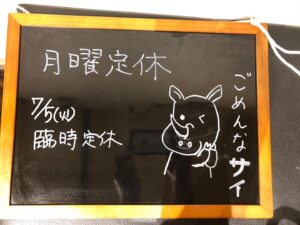 月曜定休
7/5(火)
臨時定休
ごめんなサイ